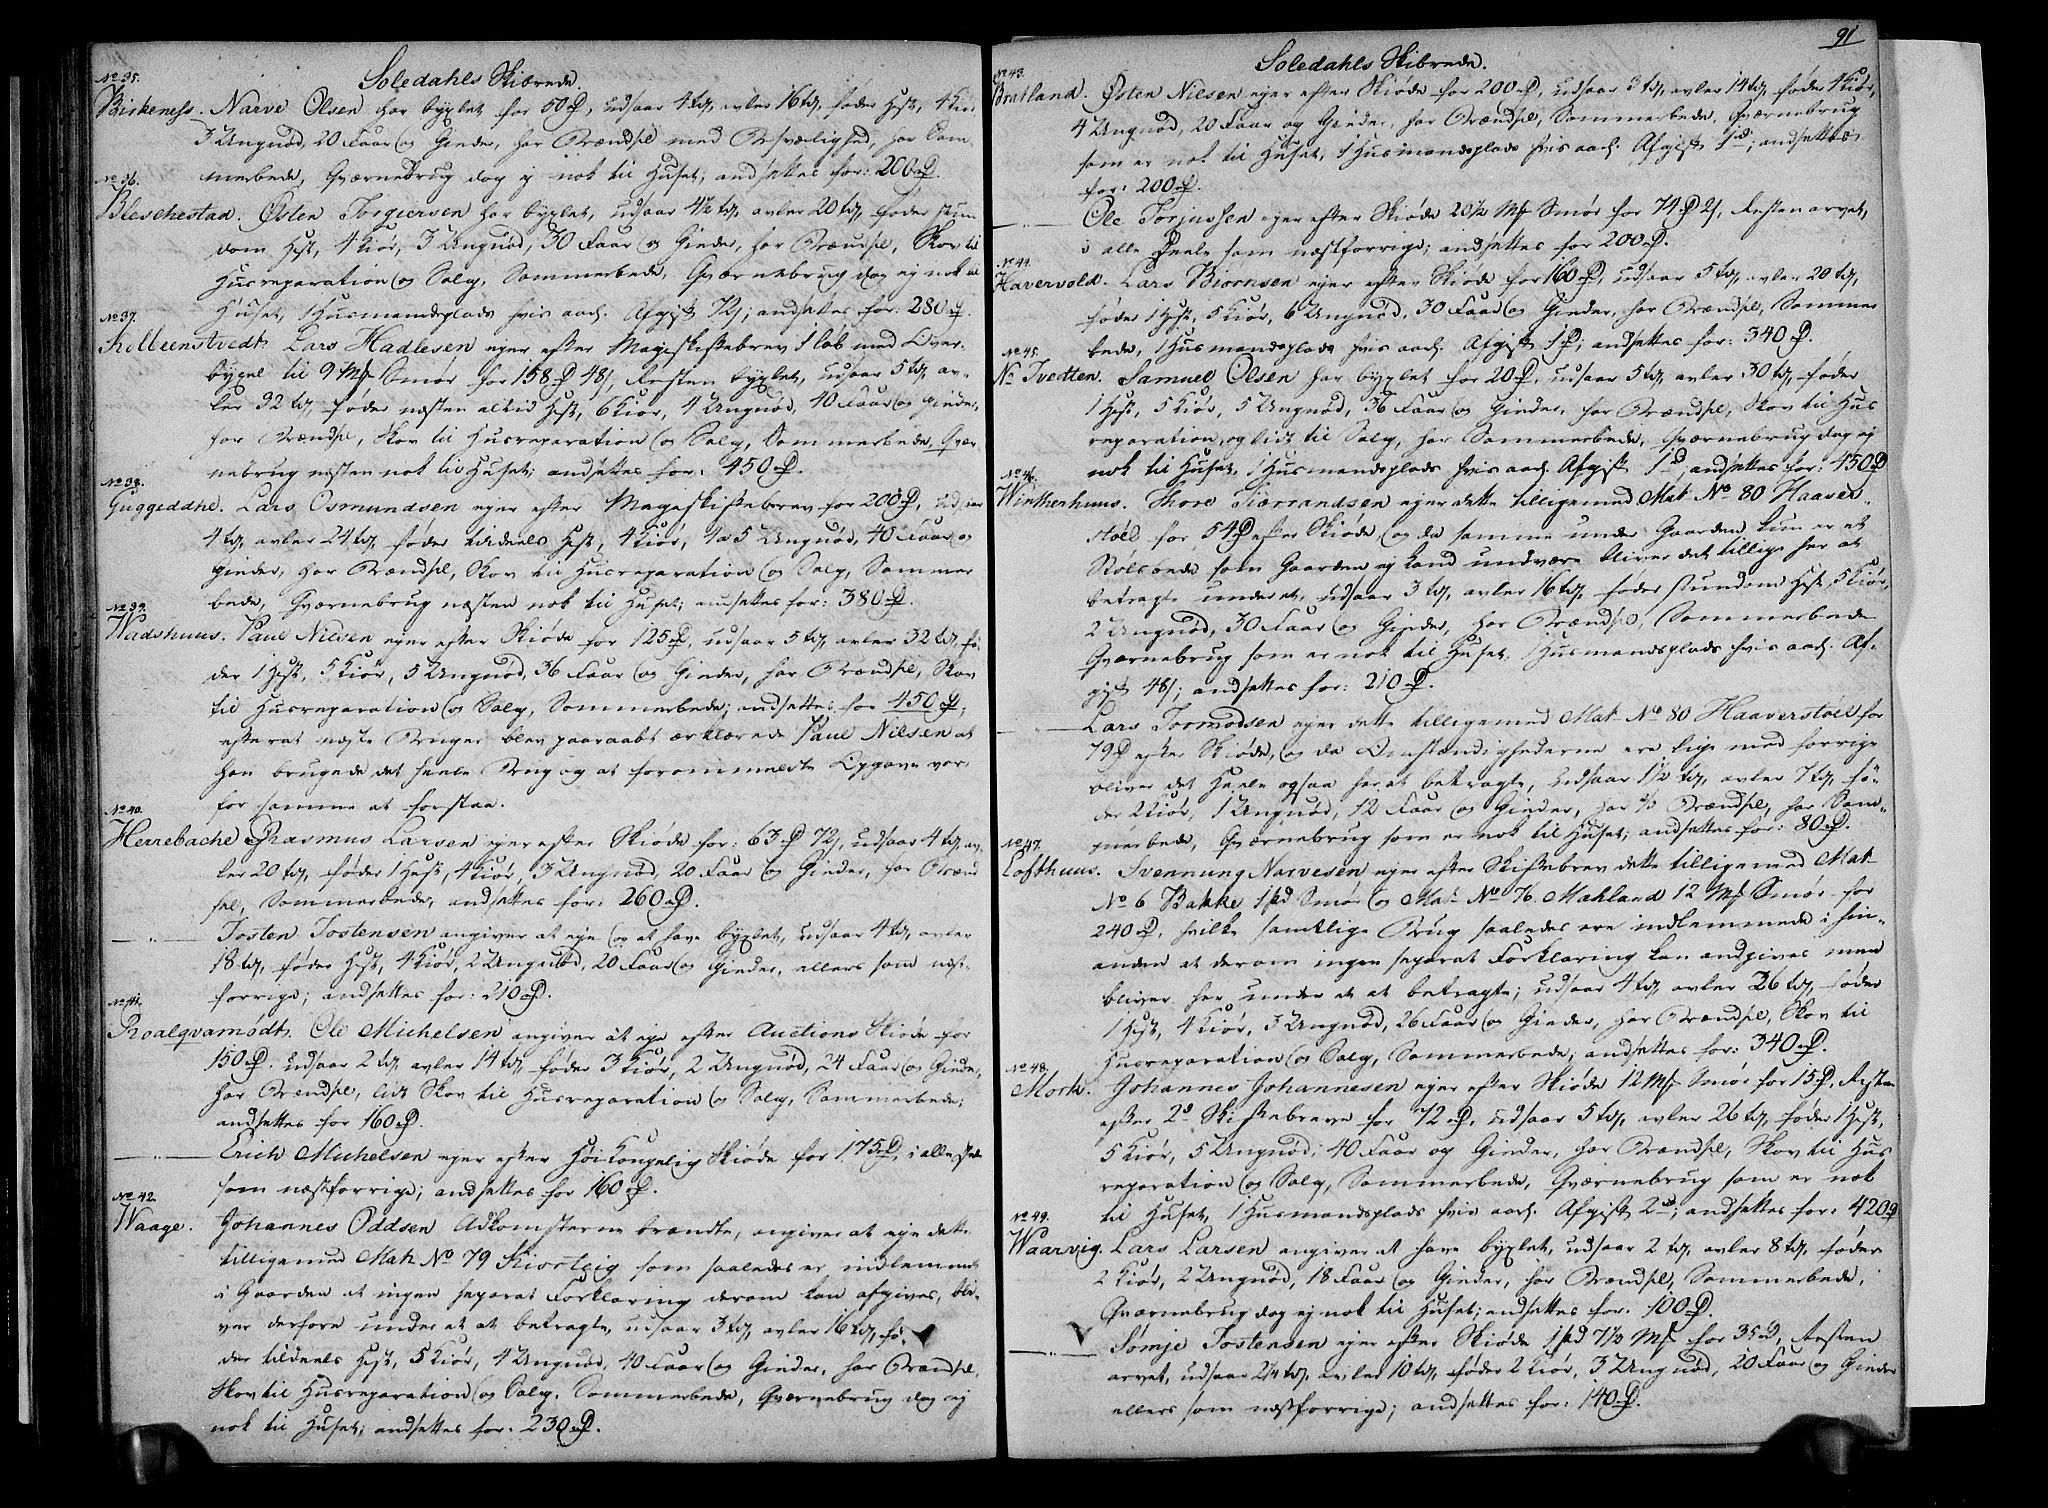 Soledahls Skibrede.
No 35.
Birkeness. Narve Olsen har byxlet for 50 D, udsaar 4 td, avler 16 td, føder Hest, 4 Kiør,
3 Ungnød, 20 Faar og Gieder, har Brændsel med Besværlighed, har Som-
merbede, Qværnebrug dog ej nok til Huset; andsettes for: 200 D.
No 36.
Bleschestad. Østen Torgiersen har byxlet, udsaar 4½ td, avler 20 td, føder stun-
dom Hest, 4 Kiør, 3 Ungnød, 30 Faar og Gieder, har Brændsel, Skov til
Husreparation og Salg, Sommerbede, Qværnebrug dog ej nok til
Huset, 1 Husmandsplads hvis aarl. Afgift 72 s; andsettes for: 280 D.
No 37.
Killeenstvedt. Lars Hadlesen ejer efter Mageskiftebrev 1 løb med Over-
bygsel til 9 Mk Smør for 158 D 48 s, Resten byxlet, udsaar 5 td, av-
ler 32 td, føder næsten altid Hest, 6 Kiør, 4 Ungnød, 40 Faar og Gieder,
har Brændsel, Skov til Husreparation og Salg, Sommerbede, Qvær-
nebrug næsten nok til Huset; andsettes for: 450 D.
No 38.
Guggeddhe. Lars Osmundsen ejer efter Mageskiftebrev for 200 D, udsaar
4 td, avler 24 td, føder tildeels Hest, 4 Kiør, 4 a 5 Ungnød, 40 Faar og
Gieder, har Brændsel, Skov til Husreparation og Salg, Sommer
bede, Qværnebrug næsten nok til Huset; andsettes for: 380 D.
No 39.
Wadshuus. Paul Nilsen ejer efter Skiøde for 125 D, udsaar 5 td, avler 32 td, fø-
der 1 Hest, 5 Kiør, 5 Ungnød, 36 Faar og Gieder, har Brændsel, Skov
til Husreparation og Salg, Sommerbede; andsettes for 450 D,
efterat næste Bruger blev paaraabt erklærede Paul Nilsen at
han brugede det heele Brug og at forommeldte Opgave var
for samme at forstaa.
No 40.
Herrebache Rasmus Larsen ejer efter Skiøde for: 63 D 72 s, udsaar 4 td, av-
ler 20 td, føder 1 Hest, 4 Kiør, 3 Ungnød, 20 Faar og Gieder, har Brænd
sel, Sommerbede, andsettes for: 260 D.
— „ — Tosten Tostensen angiver at eje og at have byxlet, udsaar 4 td, avler
18 td, føder Hest, 4 Kiør, 2 Ungnød, 20 Faar og Gieder, ellers som næst-
forrige; andsettes for: 210 D.
No 41.
Roalqvamødt. Ole Michelsen angiver at eje efter Auctions Skiøde for
150 D. udsaar 2 td, avler 14 td, føder 3 Kiør, 2 Ungnød, 24 Faar og Gieder,
har Brændsel, lidt Skov til Husreparation og Salg, Sommerbede;
andsettes for 160 D.
— „ — Erich Michelsen ejer efter Høikongelig Skiøde for 175 D, i alle Deele
som næstforrige; andsettes for 160 D.
No 42.
Waage. Johannes Oddsen Adkomsterne brændte, angiver at eje dette
tilligemed Mat. No 79 Kiorsteig som saaledes er indlemmet
i Gaarden at ingen separat Forklaring derom kan afgives, bli-
ver derfore under et at betragte, udsaar 3 td, avler 16 td, fø-
der tildeels Hest, 5 Kiør, 4 Ungnød, 40 Faar og Gieder, har Brændsel,
Skov til Husreparation og Salg, Sommerbede, Qværnebrug dog ej
nok til Huset; andsettes for: 230 D.
91
Soledahls Skibrede.
No 43.
Bratland. Østen Nilsen ejer efter Skiøde for 200 D, udsaar 3 td, avler 14 td, føder 4 Kiør,
4 Ungnød, 20 Faar og Gieder, har Brændsel, Sommerbede, Qværnebrug
som er nok til Huset, 1 Husmandsplads hvis aarl. Afgift 1 D; andsettes
for: 200 D.
— „ — Ole Torjussen ejer efter Skiøde 20½ Mk Smør for 74 D 2 s, Resten arvet,
i alle Deele som næstforrige; andsettes for 200 D.
No 44.
Havervold. Lars Biørnsen ejer efter Skiøde for 160 D, udsaar 5 td, avler 20 td,
føder 1 Hest, 5 Kiør, 6 Ungnød, 30 Faar og Gieder, har Brændsel, Sommer
bede, 1 Husmandsplads hvis aarl. Afgift 1 D; andsettes for: 340 D.
No 45.
N. Tvedten. Samuel Olsen har byxlet for 20 D, udsaar 5 td, avler 30 td, føder
1 Hest, 5 Kiør, 5 Ungnød, 36 Faar og Gieder, har Brændsel, Skov til Hus
reparation, og lidt til Salg, har Sommerbede, Qværnebrug dog ej
nok til Huset, 1 Husmandsplads hvis aarl. Afgift 1 D; andsettes for: 450 D
No 46.
Wintherhuus. Thore Siørrandsen ejer dette tilligemed Mat. No 80 Haaver-
støel for 54 D efter Skiøde og da samme under Gaarden kun er et
Stølsbede som Gaarden ej kand undvære bliver det tillige her at
betragte under et, udsaar 3 td, avler 16 td, føder stundom Hest, 5 Kiør,
2 Ungnød, 30 Faar og Gieder, har Brændsel, Sommerbede
Qværnebrug som er nok til Huset, 1 Husmandsplads hvis aarl. Af-
gift 48 s; andsettes for: 210 D.
— Lars Tormodsen ejer dette tilligemed Mat. No 80 Haaverstøel for
79 D efter Skiøde, og da Omstændighederne ere lige med forrige
bliver det heele ogsaa her at betragte, udsaar 1½ td, avler 7 td, fø-
der 2 Kiør, 1 Ungnød, 12 Faar og Gieder, har ⅔ Brændsel, har Som-
merbede, Qværnebrug som er nok til Huset; andsettes for: 80 D.
No 47.
Lofthuus. Svennung Narvesen ejer efter Skiftebrev dette tilligemed Mat.
No 6 Bakke 1 spd Smør og Mat. No 76. Mæhland 12 Mk Smør for
240 D, hvilke samtlige Brug saaledes ere indlemmede i hin-
anden at derom ingen separat Forklaring kan andgives men
bliver her under et at betragte; udsaar 4 td, avler 26 td, føder
1 Hest, 4 Kiør, 3 Ungnød, 26 Faar og Gieder, har Brændsel, Skov til
Husreparation og Salg, Sommerbede; andsettes for: 340 D.
No 48.
Mork. Johannes Johannesen ejer efter Skiøde 12 Mk Smør for 15 D, Resten
efter 2de Skiftebreve for 72 D, udsaar 5 td, avler 26 td, føder 1 Hest,
5 Kiør, 5 Ungnød, 40 Faar og Gieder, har Brændsel, Skov til Hus
reparation og Salg, Sommerbede, Qværnebrug som er nok
til Huset, 1 Husmandsplads hvis aarl. Afgift 2 D; andsettes for: 420 D
No 49.
Waarvig. Lars Larsen angiver at have byxlet, udsaar 2 td, avler 8 td, føder
2 Kiør, 2 Ungnød, 18 Faar og Gieder, har Brændsel, Sommerbede,
Qværnebrug dog ej nok til Huset; andsettes for: 100 D.
— „ — Sømje Tostensen ejer efter Skiøde 1 spd 7½ Mk for 35 D, Resten
arvet, udsaar 2¼ td, avler 10 td, føder 2 Kiør, 3 Ungnød, 20 Faar og Gieder
ellers som næstforrige; andsettes for: 140 D.